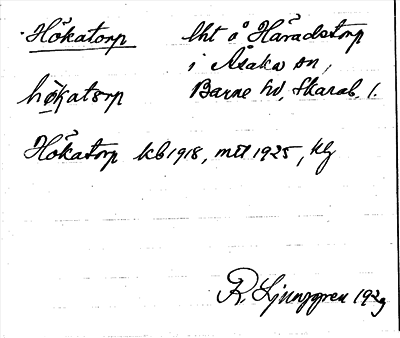 Hökatorp lht å Häradstorp
i Åsaka sn,
høkatɷrp Barne hd, Skarab. l.
Hökatorp kb 1918, mtl 1925, hg
R. Ljunggren 1929